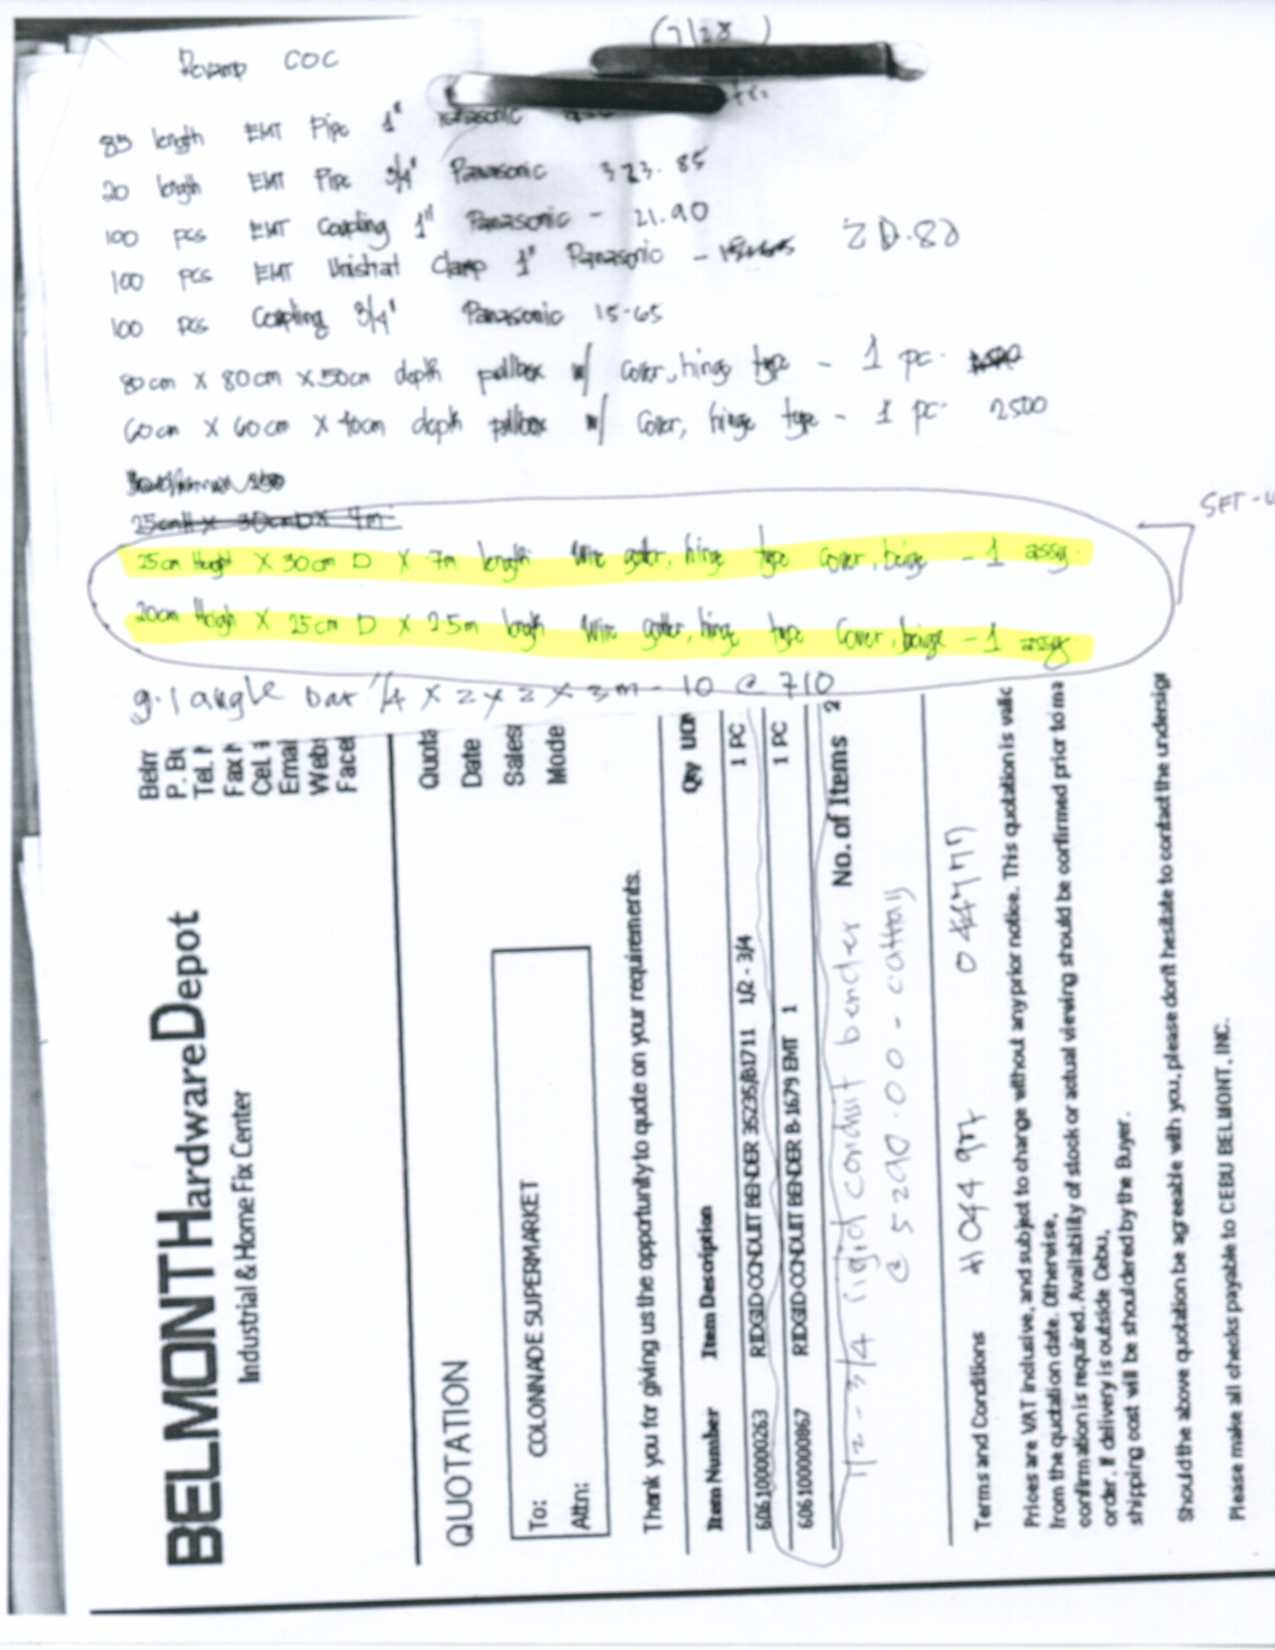 Revamp COC
(7/28)
85 length EMT Pipe 1" Panasonic
20 length EMT Pipe 3/4" Panasonic 323.85
100 pcs EMT Coupling 1" Panasonic - 21.90
100 pcs EMT Unishat Clamp 1" Panasonic - 20.80
100 pcs Coupling 3/4" Panasonic 15-65
80cm X 80cm X 50cm depth pullbox w/ cover, hinge type - 1 pc.
60cm X 60cm X 40cm depth pullbox w/ Cover, hinge type - 1 pc- 2500
25cmH x 30cmD x 7m
SET-U
25cm Height X 30cm D X 7m length Wire gutter, hinge type cover, beige - 1 assy.
20cm Heigh X 25cm D X 25m length Wire gutter, hinge type Cover, beige - 1 assy
g.i angle bar 1/4 x 2 x 2 x 3m - 10 @ 710
BELMONT HardwareDepot
Industrial & Home Fix Center
Belm
P. Bu
Tel. N
Fax N
Cel. #
Email
Webs
Face
QUOTATION
Quota
Date
Sales
Mode
To: COLONNADE SUPERMARKET
Attn:
Thank you for giving us the opportunity to quote on your requirements.
Item Number Item Description Qty UOM
606100000263 RIDGID CONDUIT BENDER 35235/B1711 1/2 - 3/4 1 PC
606100000867 RIDGID CONDUIT BENDER B-1679 EMT 1 1 PC
No. of Items 2
1/2 - 3/4 rigid conduit bender
@ 5290.00 -
Terms and Conditions
Prices are VAT inclusive, and subject to change without any prior notice. This quotation is valid
from the quotation date. Otherwise,
confirmation is required. Availability of stock or actual viewing should be confirmed prior to ma
order. If delivery is outside Cebu,
shipping cost will be shouldered by the Buyer.
Should the above quotation be agreeable with you, please don't hesitate to contact the undersign
Please make all checks payable to CEBU BELMONT, INC.